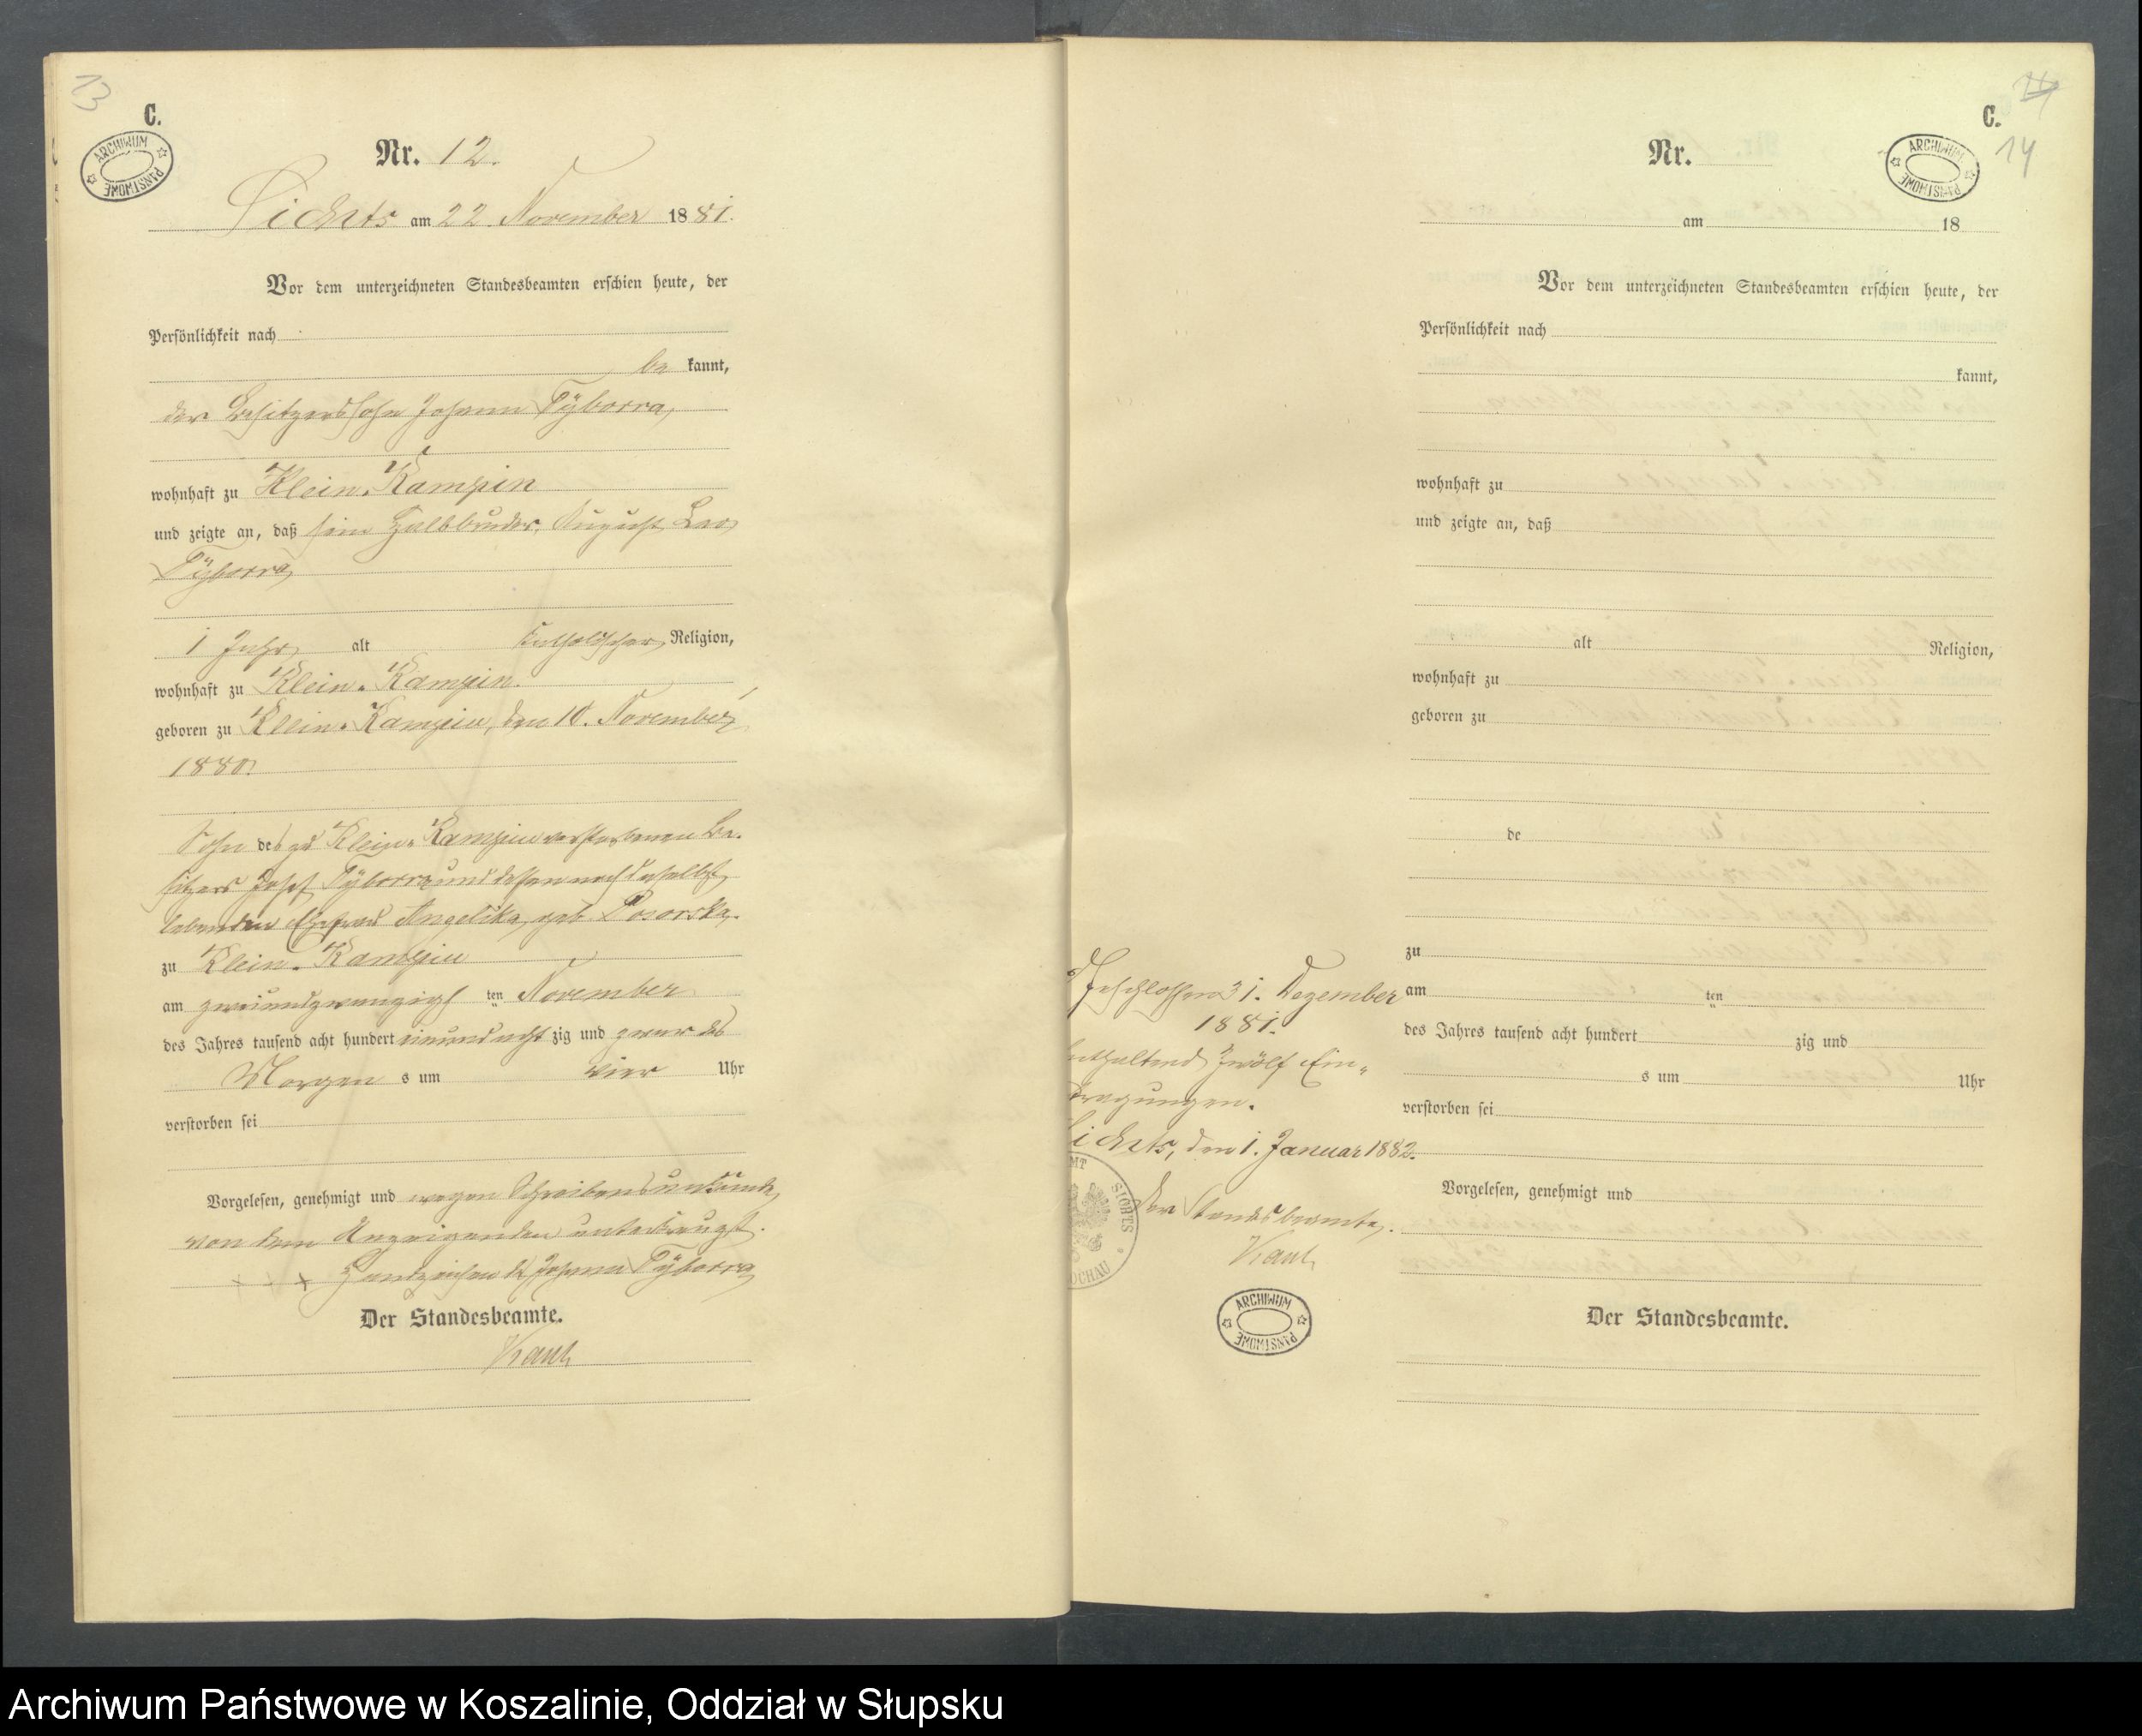 13
C.
ARCHIWUM PAŃSTWOWE
Nr. 12.
Sichts am 22. November 1881.
Vor dem unterzeichneten Standesbeamten erschien heute, der
Persönlichkeit nach
be kannt,
der Besitzerssohn Johann Tÿborra,
wohnhaft zu Klein-Kampin
und zeigte an, daß sein Halbbruder, August Leo
Tÿborra,
1 Jahr, alt katholischer Religion,
wohnhaft zu Klein-Kampin.
geboren zu Klein-Kampin, den 10. November
1880.
Sohn des zu Klein-Kampin verstorbenen Be-
sitzers Josef Tÿborra und dessen noch daselbst
lebenden Ehefrau Angelika, geb.
zu Klein-Kampin
am zweiundzwanzigsten November
des Jahres tausend acht hundert einundacht zig und zwar des
Morgen s um vier Uhr
verstorben sei
Vorgelesen, genehmigt und wegen Schreibensunkunde
von dem Anzeigenden unterkreuzt.
+ + + Handzeichen d. Johann Tÿborra
Der Standesbeamte.
Kautz
C.
14
ARCHIWUM PAŃSTWOWE
Nr.
am 18
Vor dem unterzeichneten Standesbeamten erschien heute, der
Persönlichkeit nach
kannt,
wohnhaft zu
und zeigte an, daß
alt Religion,
wohnhaft zu
geboren zu
de
zu
am ten
des Jahres tausend acht hundert zig und
s um Uhr
verstorben sei
Vorgelesen, genehmigt und
Der Standesbeamte.
Geschlossen 31. Dezember
1881.
enthaltend zwölf Ein-
tragungen.
Sichts, den 1. Januar 1882.
Der Standesbeamte.
Kautz
SICHTS
ARCHIWUM PAŃSTWOWE
Archiwum Państwowe w Koszalinie, Oddział w Słupsku